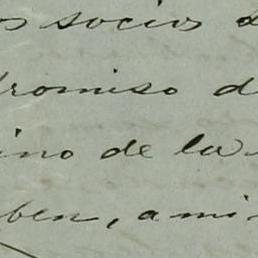 os socios
romiso d
ino de la
ben, ami